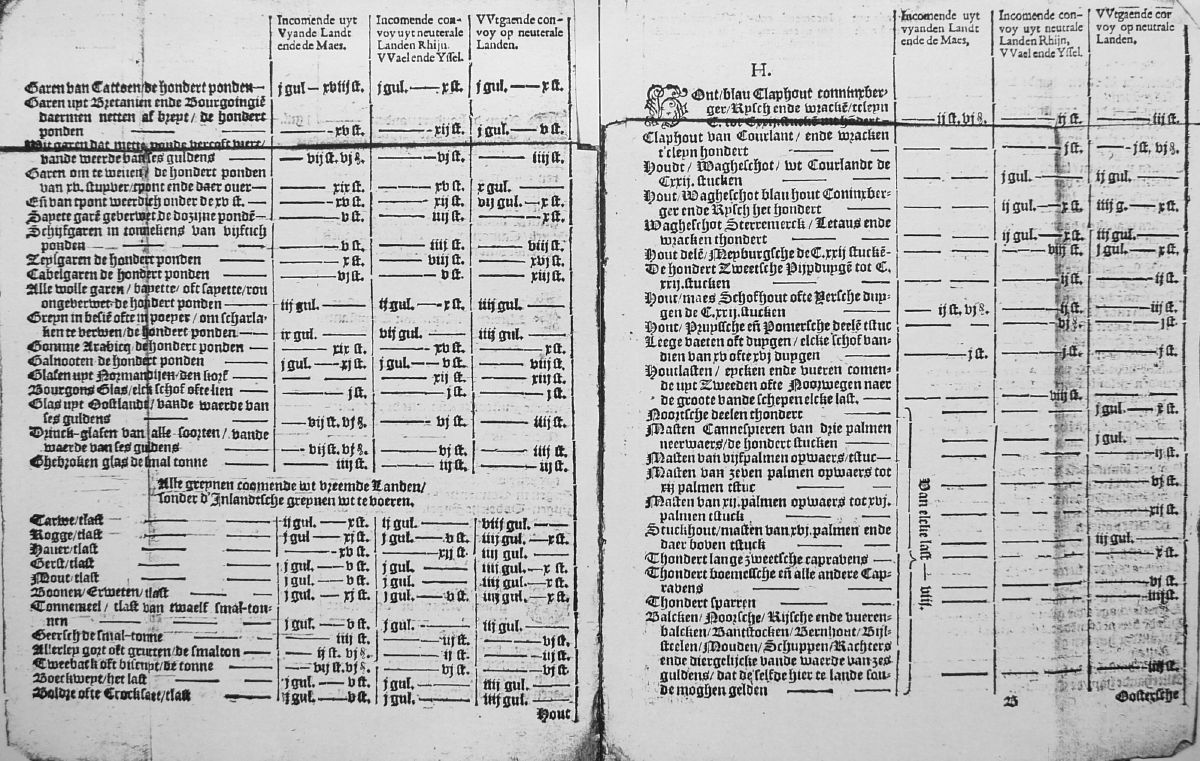 Incomende uyt
Vyande Landt
ende de Maes.
Incomende con-
voy uyt neuterale
Landen Rhijn.
VVael ende Yssel.
VVtgaende con-
voy op neuterale
Landen.
Garen van Cattoen de hondert ponden— j gul — xviij st. j gul. — x st. j gul. — x st.
Garen uyt Bretanien ende Bourgoingiē
daermen netten af breyt / de hondert
ponden — xv st. — xij st. j gul. — v st.
Wit garen dat
vande weerde van ses guldens — vij st. vj ₰. — vj st. iiij st.
Garen om te weven / de hondert ponden
van xv. stuyver / tpont ende daer over— — xix st. — xv st. x gul.
Eñ van tpont weerdich onder de xv st. — xv st. — xij st. vij gul. — x st.
Sayete garē geverwet de dozijne pondē— — v st. — iiij st. — x st.
Schijfgaren in tonnekens van vijftich
ponden — v st. — iiij st. — viij st.
Zeylgaren de hondert ponden — x st. — viij st. — xvj st.
Cabelgaren de hondert ponden — vj st. — v st. — xij st.
Alle wolle garen / bayette / oft sayette / rou
ongeverwet de hondert ponden — iij gul. ij gul. — x st. iiij gul.
Greyn in besiē ofte in poeyer / om scharla-
ken te verwen / de hondert ponden — ix gul. vij gul. iiij gul.
Gomme Arabicq de hondert ponden — xix st. — xv st. — x st.
Galnooten de hondert ponden j gul — xj st. j gul. — v st. viij st.
Glasen uyt Normandijen / den korf — xij st. — xij st.
Bourgons Glas / elck schof ofte lien — j st. — j st. — j st.
Glas uyt Oostlandt / vande waerde van
ses guldens — vij st. vj ₰. — vj st. — iiij st.
Drinck-glasen van alle soorten / vande
waerde van ses guldens — vij st. vj ₰. — vj st. — iij st.
Ghebroken glas de smal tonne — iiij st. — iij st. — iij st.
Alle greynen coomende wt vreemde Landen /
sonder d'Inlandtsche greynen wt te voeren.
Tarwe / tlast ij gul. — x st. ij gul. — viij gul. —
Rogge / tlast j gul — xj st. j gul. — v st. iiij gul. — x st.
Haver / tlast — xv st. — xij st. iij gul. —
Gerst / tlast j gul. — v st. j gul. — iij gul. — x st.
Mout / tlast j gul. — v st. j gul. — iiij gul. — x st.
Boonen / Erweten / tlast j gul. — xj st. j gul. — v st. iiij gul. — x st.
Tonnemeel / tlast van twaelf smal-ton-
nen j gul. — v st. j gul. — iij gul. —
Geersch de smal-tonne — iiij st. — iij st. — vj st.
Allerley gort oft grutten / de smalton — ij st. vj ₰. — ij st. — iij st.
Tweeback oft biscuyt / de tonne — vij st. vj ₰. — vj st. — vj st.
Boeckweyt / het last j gul. — v st. j gul. — iiij gul. —
Boldije ofte Crocksaet / tlast j gul. — v st. j gul. — iij gul. —
Hout
Incomende uyt
vyanden Landt
ende de Maes,
Incomende con-
voy uyt neutrale
Landen Rhijn,
VVael ende Yssel.
VVtgaende con
voy op neutrale
Landen,
H.
HOnt / blau Claphout conninxber-
ger / Rysch ende wrackē / cleyn
— ij st, vj ₰. — ij st. — iiij st.
Claphout van Courlant / ende wracken
t'cleyn hondert — j st. — j st, vj ₰.
Houdt / Wagheschot / wt Courlandt de
C.xxij. stucken j gul. — x st. ij gul. —
Hout / Wagheschot blau hout Coninxber-
ger ende Rysch het hondert ij gul. — x st. iiij g. — x st.
Wagheschot Sterremerck / Letaus ende
wracken thondert ij gul. — x st. iij gul. — x st.
Hout delē / Meyburgsche de C.xxij stuckē— — viij st. j gul. — x st.
De hondert Zweetsche Pijpduygē tot C.
xxij. stucken — ij st. — ij st.
Hout / maes Schofhout ofte Persche duy-
gen de C.xxij. stucken — ij st, vj ₰. — ij st. — iij st.
Hout / Pruyssche eñ Pomersche deelē tstuc — vj ₰. — j st.
Leege vaeten oft duygen / elcke schof van-
dien van xv ofte xvj duygen — j st. — j st. — j st.
Houtlasten / eycken ende vueren comen-
de uyt Zweeden ofte Noorwegen naer
de groote vande schepen elcke last. — viij st.
Noortsche deelen thondert — j gul. — x st.
Masten Cannespieren van drie palmen
neerwaers / de hondert stucken — j gul. —
Masten van vijf palmen opwaers / tstuc— — ij st.
Masten van zeven palmen opwaers tot
xij palmen tstuc — vj st.
Masten van xij. palmen opwaers tot xvj.
palmen tstuck — xij st.
Stuckhout / masten van xvj. palmen ende
daer boven tstuck iij gul. —
Thondert lange zweetsche capravens — x st.
Thondert boemessche eñ alle andere Cap-
ravens — vj st.
Thondert sparren — iiij st.
Balcken / Noorsche / Rijsche ende vueren-
balcken / Banstocken / Bernhout / Bijl-
steelen / Mouden / Schuppen / Rachters
ende diergelijcke vande waerde van zes
guldens / dat de selfde hier te lande sou-
de moghen gelden — iiij st.
Van elcke last — viij.
B
Oostersche